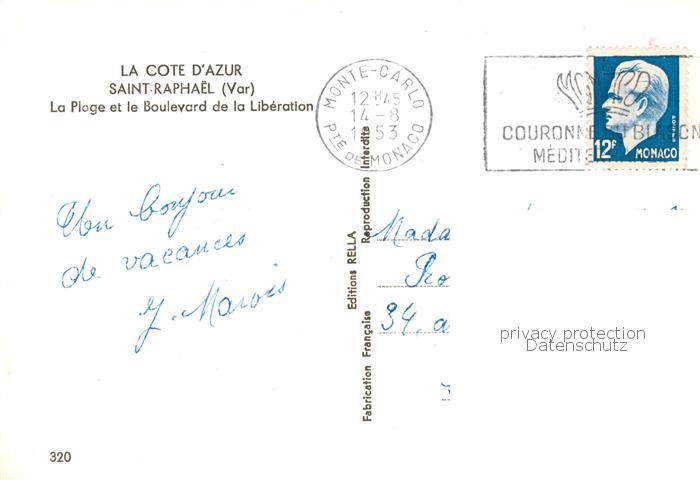 LA COTE D'AZUR
SAINT-RAPHAËL (Var)
La Plage et le Boulevard de la Libération
MONTE-CARLO
12 H45
14-8
1953
PTÉ DE MONACO
COURONNE DU BLASON
MÉDITE
12F
MONACO
Un bonjour
de vacances
J. Marois
Editions RELLA
Reproduction Interdite
Fabrication Française
Mada
Pro
34, a
privacy protection
Datenschutz
320